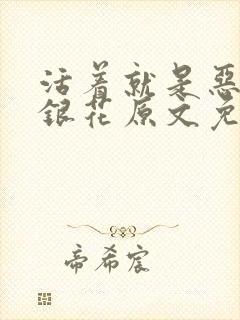 活着就是恶
銀花原文免
帝希宸